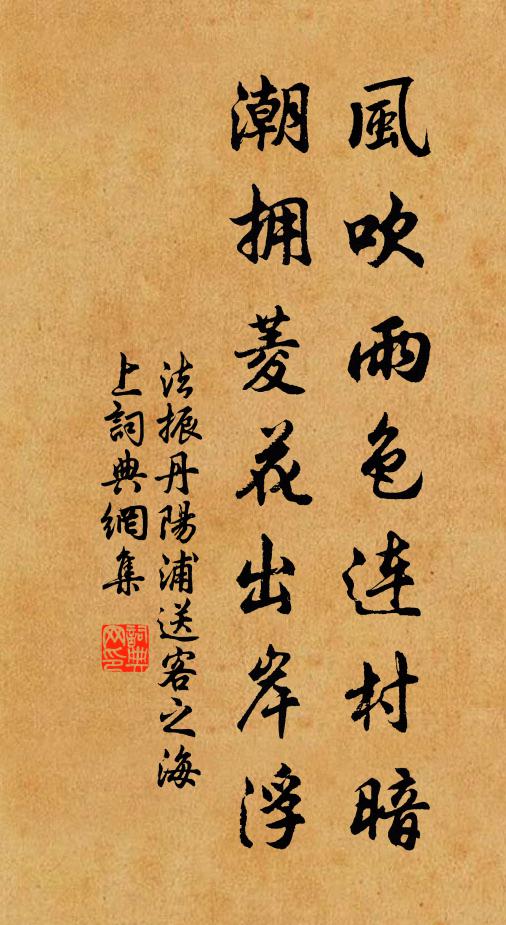 風吹雨色连村暗
潮拥菱花出岸浮
法振丹陽浦送客之海
上詞典網集
詞典网印